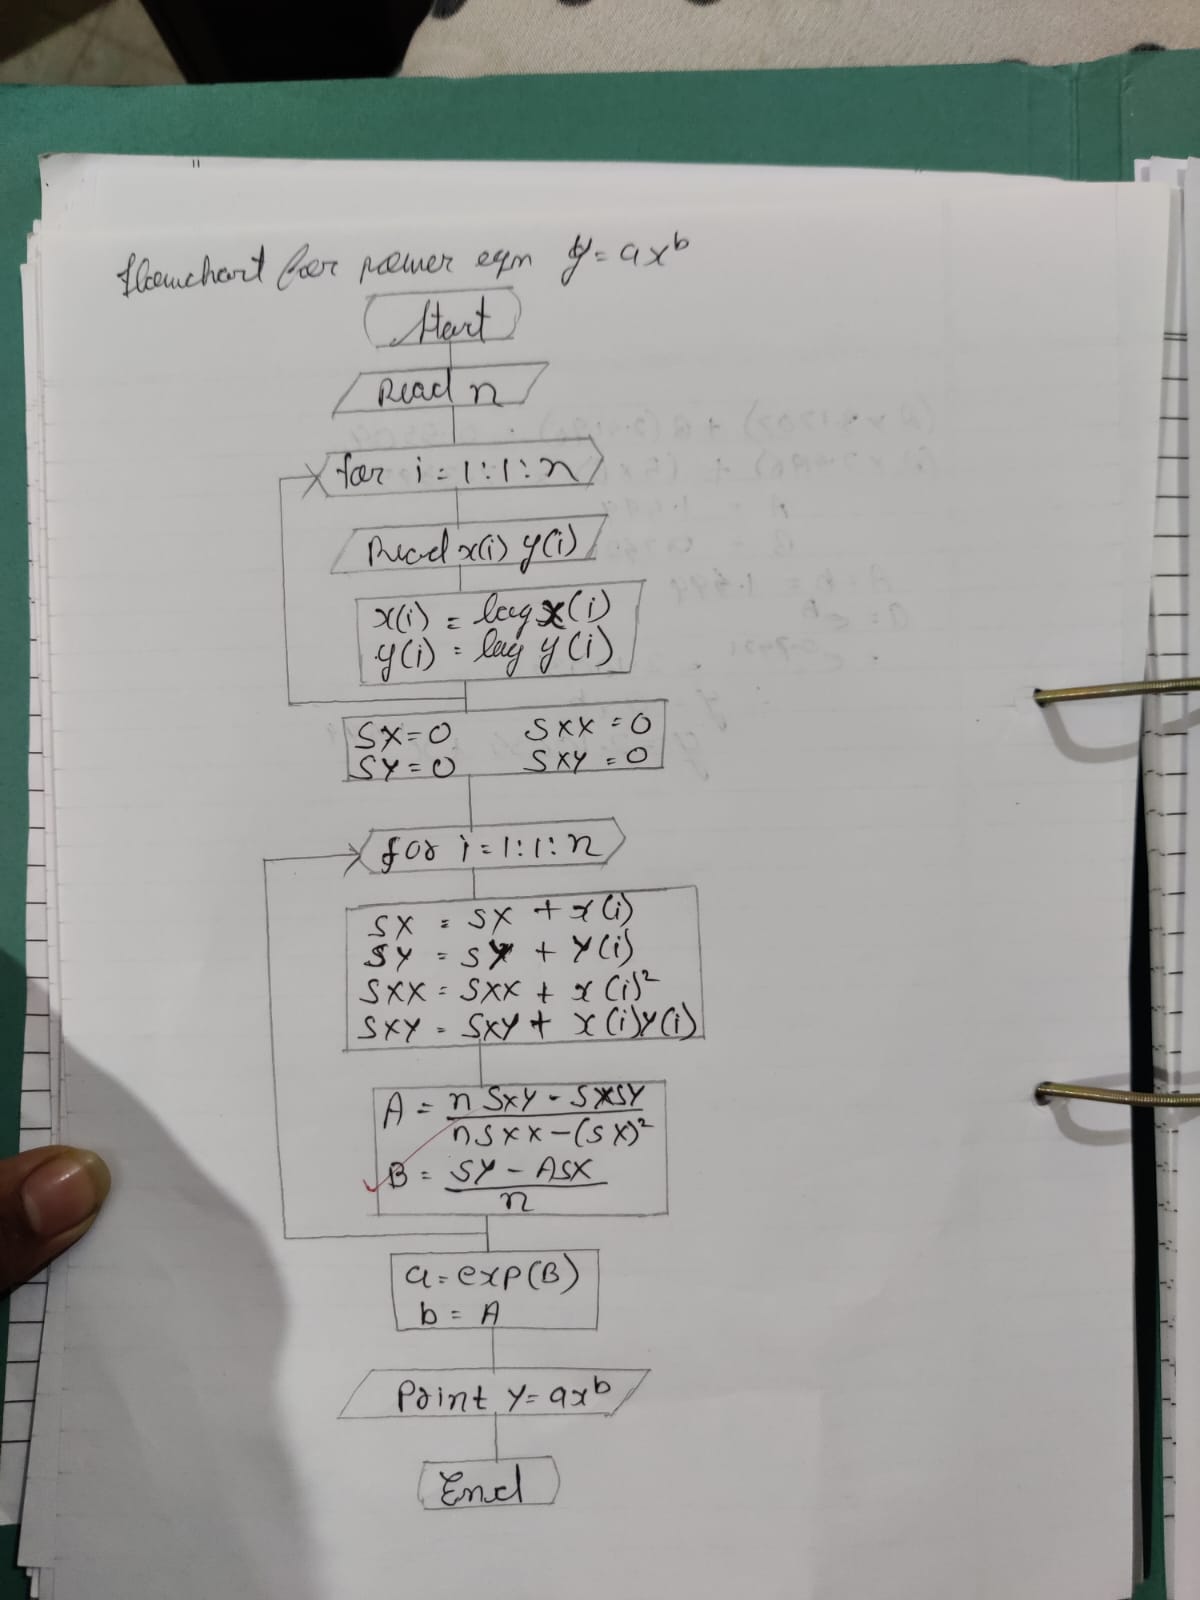 flowchart for power eqn y = ax^b
Start
Read n
for i = 1:1:n
Read x(i) y(i)
x(i) = log x(i)
y(i) = log y(i)
SX=0 SXX=0
SY=0 SXY=0
for i=1:1:n
SX = SX + x(i)
SY = SY + Y(i)
SXX = SXX + x(i)²
SXY = SXY + x(i)Y(i)
A = n SXY - SXSY
nSXX-(SX)²
B = SY - ASX
n
a=exp(B)
b = A
Print Y=ax^b
End